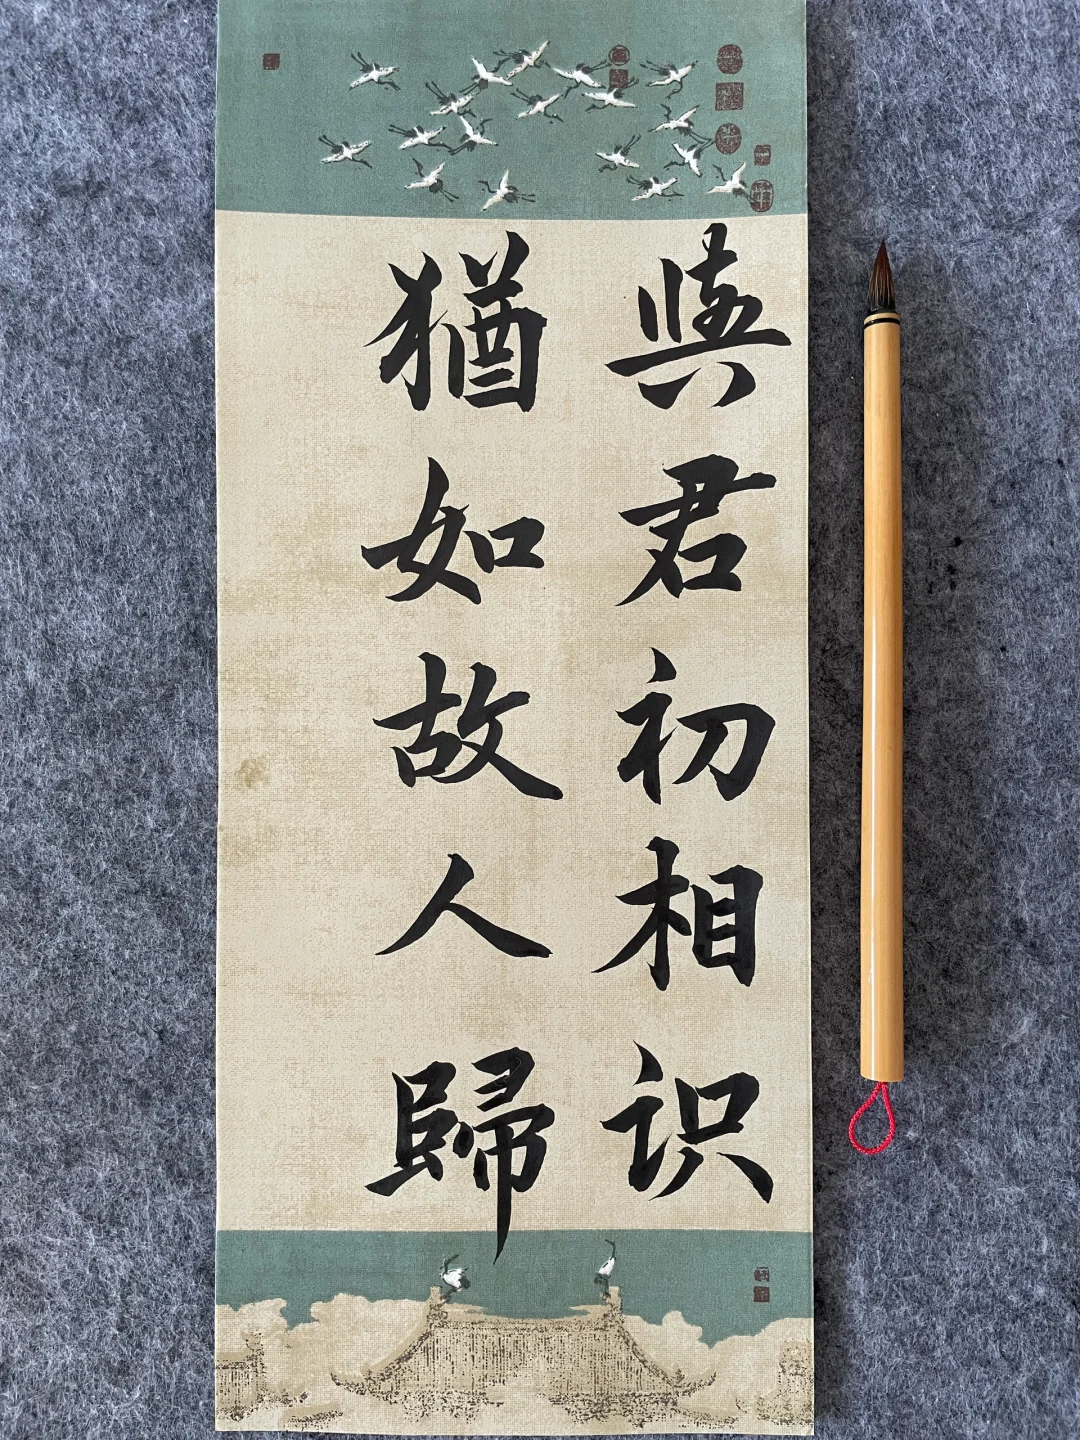 與君初相识
猶如故人歸